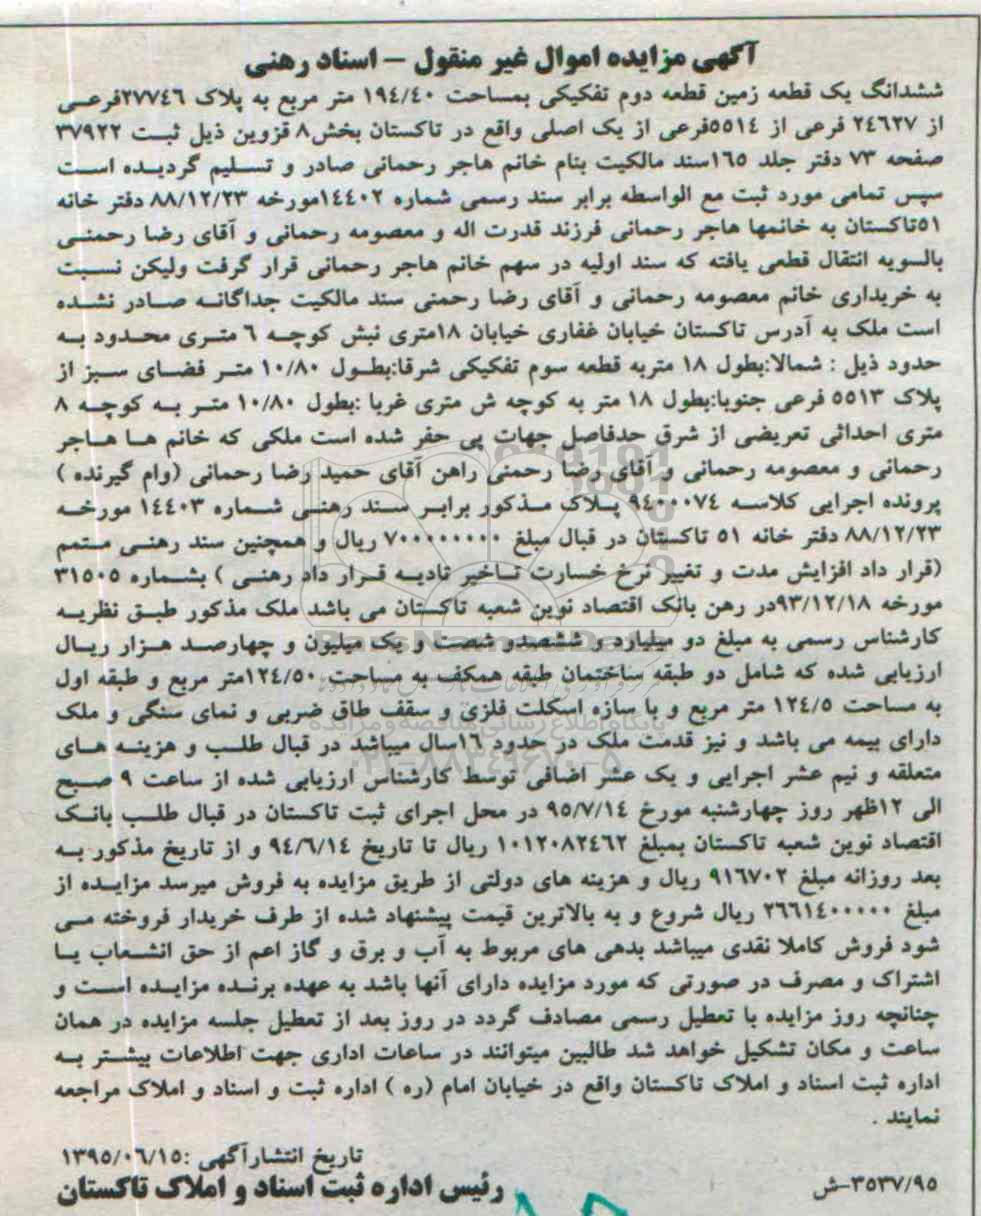 آگهی مزایده اموال غیر منقول - اسناد رهنی
ششدانگ یک قطعه زمین قطعه دوم تفکیکی بمساحت ۱۹٤/٤۰ متر مربع به پلاک ۲۷۷٤٦فرعی
از ۲٤٦۲۷ فرعی از ٥٥۱٤فرعی از یک اصلی واقع در تاکستان بخش۸ قزوین ذیل ثبت ۳۷۹۲۲
صفحه ۷۳ دفتر جلد ۱٦٥سند مالکیت بنام خانم هاجر رحمانی صادر و تسلیم گردیده است
سپس تمامی مورد ثبت مع الواسطه برابر سند رسمی شماره ۱٤٤۰۲مورخه ۸۸/۱۲/۲۳ دفتر خانه
٥۱تاکستان به خانمها هاجر رحمانی فرزند قدرت اله و معصومه رحمانی و آقای رضا رحمنی
بالسویه انتقال قطعی یافته که سند اولیه در سهم خانم هاجر رحمانی قرار گرفت ولیکن نسبت
به خریداری خانم معصومه رحمانی و آقای رضا رحمنی سند مالکیت جداگانه صادر نشده
است ملک به آدرس تاکستان خیابان غفاری خیابان ۱۸متری نبش کوچه ٦ متری محدود به
حدود ذیل : شمالا:بطول ۱۸ متربه قطعه سوم تفکیکی شرقا:بطول ۱۰/۸۰ متر فضای سبز از
پلاک ٥٥۱۳ فرعی جنوبا:بطول ۱۸ متر به کوچه ش متری غربا :بطول ۱۰/۸۰ متر به کوچه ۸
متری احداثی تعریضی از شرق حدفاصل جهات پی حفر شده است ملکی که خانم ها هاجر
رحمانی و معصومه رحمانی و آقای رضا رحمنی راهن آقای حمید رضا رحمانی (وام گیرنده )
پرونده اجرایی کلاسه ۹٤۰۰۰۷٤ پلاک مذکور برابر سند رهنی شماره ۱٤٤۰۳ مورخه
۸۸/۱۲/۲۳ دفتر خانه ٥۱ تاکستان در قبال مبلغ ۷۰۰۰۰۰۰۰۰ ریال و همچنین سند رهنی متمم
(قرار داد افزایش مدت و تغییر نرخ خسارت تاخیر تادیه قرار داد رهنی ) بشماره ۳۱٥۰٥
مورخه ۹۳/۱۲/۱۸در رهن بانک اقتصاد نوین شعبه تاکستان می باشد ملک مذکور طبق نظریه
کارشناس رسمی به مبلغ دو میلیارد و ششصدو شصت و یک میلیون و چهارصد هزار ریال
ارزیابی شده که شامل دو طبقه ساختمان طبقه همکف به مساحت ۱۲٤/٥۰متر مربع و طبقه اول
به مساحت ۱۲٤/٥ متر مربع و با سازه اسکلت فلزی و سقف طاق ضربی و نمای سنگی و ملک
دارای بیمه می باشد و نیز قدمت ملک در حدود ۱٦سال میباشد در قبال طلب و هزینه های
متعلقه و نیم عشر اجرایی و یک عشر اضافی توسط کارشناس ارزیابی شده از ساعت ۹ صبح
الی ۱۲ظهر روز چهارشنبه مورخ ۹٥/۷/۱٤ در محل اجرای ثبت تاکستان در قبال طلب بانک
اقتصاد نوین شعبه تاکستان بمبلغ ۱۰۱۲۰۸۲٤٦۲ ریال تا تاریخ ۹٤/٦/۱٤ و از تاریخ مذکور به
بعد روزانه مبلغ ۹۱٦۷۰۲ ریال و هزینه های دولتی از طریق مزایده به فروش میرسد مزایده از
مبلغ ۲٦٦۱٤۰۰۰۰۰ ریال شروع و به بالاترین قیمت پیشنهاد شده از طرف خریدار فروخته می
شود فروش کاملا نقدی میباشد بدهی های مربوط به آب و برق و گاز اعم از حق انشعاب یا
اشتراک و مصرف در صورتی که مورد مزایده دارای آنها باشد به عهده برنده مزایده است و
چنانچه روز مزایده با تعطیل رسمی مصادف گردد در روز بعد از تعطیل جلسه مزایده در همان
ساعت و مکان تشکیل خواهد شد طالبین میتوانند در ساعات اداری جهت اطلاعات بیشتر به
اداره ثبت اسناد و املاک تاکستان واقع در خیابان امام (ره ) اداره ثبت و اسناد و املاک مراجعه
نمایند .
تاریخ انتشارآگهی :۱۳۹٥/۰٦/۱٥
۳٥۳۷/۹٥-ش
رئیس اداره ثبت اسناد و املاک تاکستان
پایگاه اطلاع رسانی مناقصه و مزایده
۰۲۱-۸۸۳٤۹٦۷۰-٥